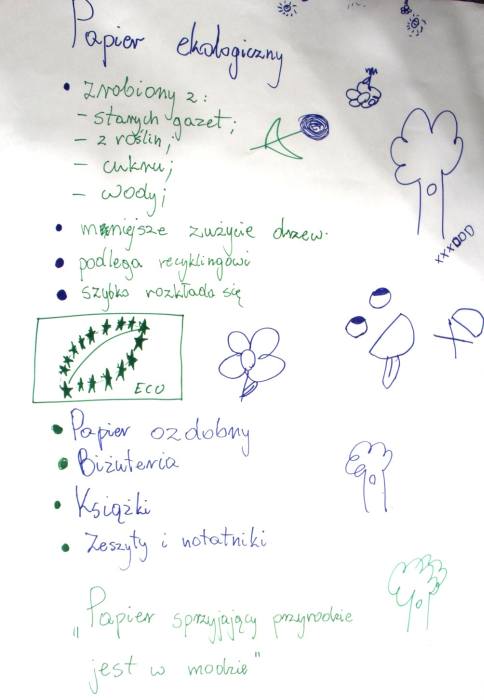 Papier ekologiczny
• zrobiony z:
- starych gazet;
- z roślin;
- cukru;
- wody;
• mniejsze zużycie drzew.
• podlega recyklingowi
• szybko rozkłada się
xxxDDD
XD
ECO
• Papier ozdobny
• Biżuteria
• Książki
• Zeszyty i notatniki
„Papier sprzyjający przyrodzie
jest w modzie"